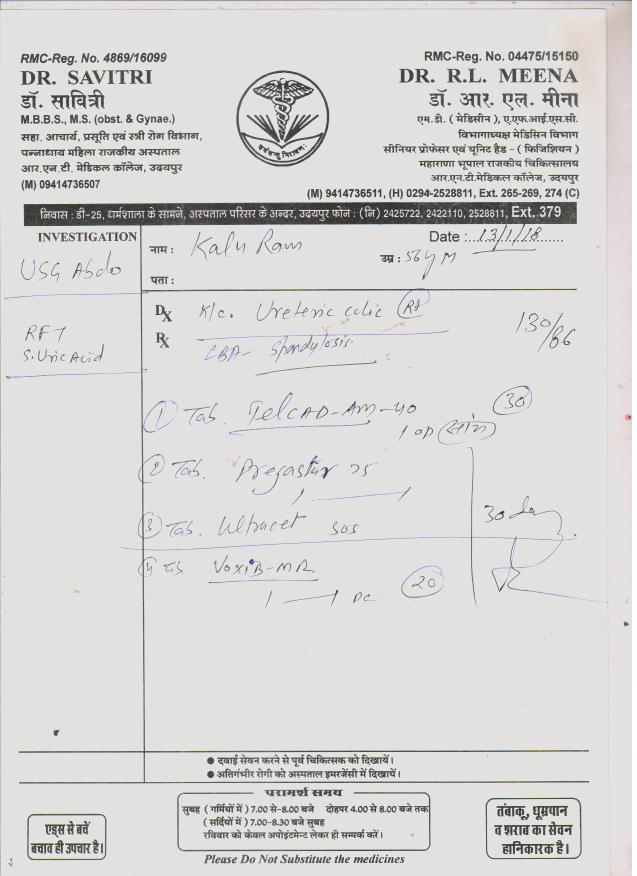 RMC-Reg. No. 4869/16099
DR. SAVITRI
डॉ. सावित्री
M.B.B.S., M.S. (obst. & Gynae.)
सहा. आचार्य, प्रसूति एवं स्त्री रोग विभाग,
पन्नाधाय महिला राजकीय अस्पताल
आर.एन.टी. मेडिकल कॉलेज, उदयपुर
(M) 09414736507
RMC-Reg. No. 04475/15150
DR. R.L. MEENA
डॉ. आर. एल. मीना
एम.डी. ( मेडिसीन ), ए.एफ.आई.एस.सी.
विभागाध्यक्ष मेडिसिन विभाग
सीनियर प्रोफेसर एवं यूनिट हैड - ( फिजिशियन )
महाराणा भूपाल राजकीय चिकित्सालय
आर.एन.टी.मेडिकल कॉलेज, उदयपुर
(M) 9414736511, (H) 0294-2528811, Ext. 265-269, 274 (C)
निवास : डी-25, धर्मशाला के सामने, अस्पताल परिसर के अन्दर, उदयपुर फोन : (नि) 2425722, 2422110, 2528811, Ext. 379
INVESTIGATION
USG Abdo
RFT
S. Uric Acid
नाम : Kalu Ram
Date : 13/1/18
उम्र : 56 y M
पता :
Dx K/c. Ureteric colic (Rt)
Rx
LBA- Spondylosis
130/86
① Tab. TelCAD-AM-40 (30)
1 OD (सांय)
② Tab. Pregastar 75
1 — 1
③ Tab. Ultracet SOS
30 day
④ Tab VoxiB-MR (20)
1 — 1 PC
● दवाई सेवन करने से पूर्व चिकित्सक को दिखायें।
● अतिगंभीर रोगी को अस्पताल इमरजेंसी में दिखायें।
परामर्श समय
सुबह ( गर्मियों में ) 7.00 से-8.00 बजे दोहपर 4.00 से 8.00 बजे तक
( सर्दियों में ) 7.00-8.30 बजे सुबह
रविवार को केवल अपोइंटमेन्ट लेकर ही सम्पर्क करें।
एड्स से बचें
बचाव ही उपचार है।
तंबाकू, धूम्रपान
व शराब का सेवन
हानिकारक है।
Please Do Not Substitute the medicines